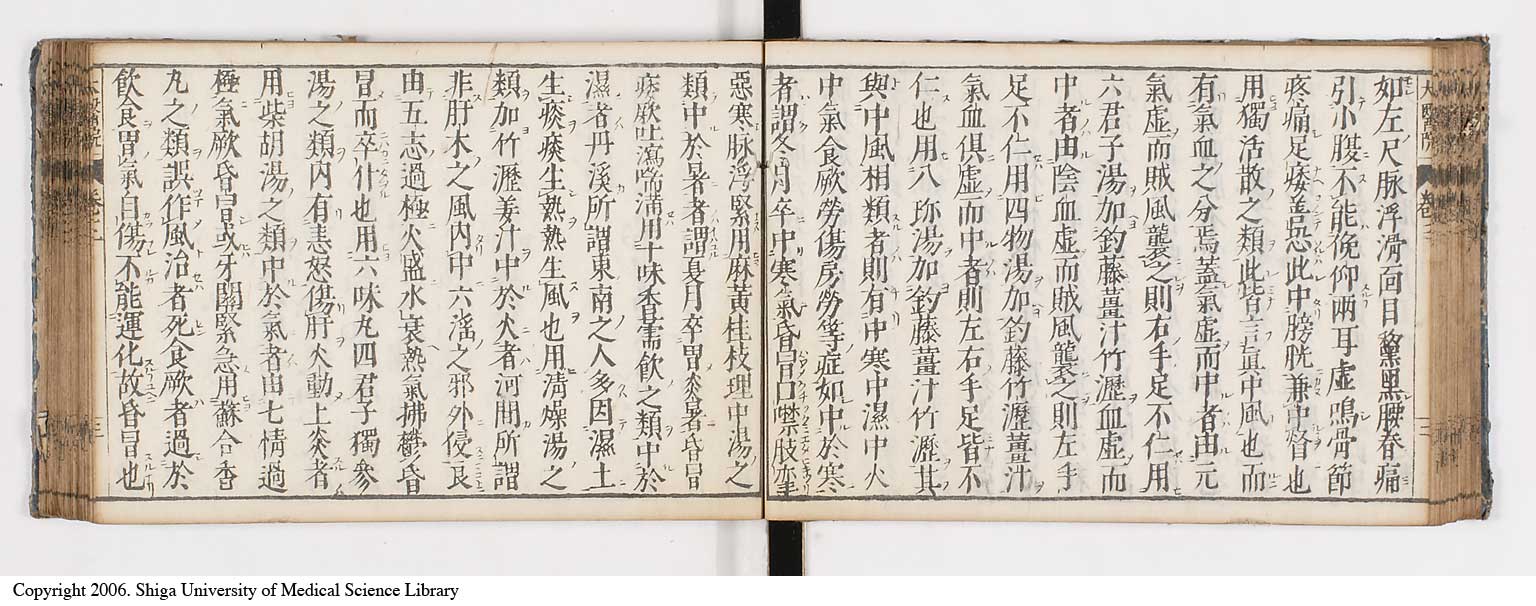 如左尺脉浮滑面目黧黒腰脊痛
引小腹不能俛仰兩耳虛鳴骨節
疼痛足痿善恐此中膀胱兼中督也
用獨活散之類此皆言眞中風也而
有氣血之分焉蓋氣虛而中者由元
氣虛而賊風襲之則右手足不仁用
六君子湯加釣藤薑汁竹瀝血虛而
中者由陰血虛而賊風襲之則左手
足不仁用四物湯加釣藤竹瀝薑汁
氣血俱虛而中者則左右手足皆不
仁也用八珎湯加釣藤薑汁竹瀝其
與中風相類者則有中寒中濕中火
中氣食厥勞傷房勞等症如中於寒
者謂冬月卒中寒氣昏冒口噤肢攣
惡寒脉浮緊用麻黃桂枝理中湯之
類中於暑者謂夏月卒冒炎暑昏冒
痿厥吐瀉喘滿用十味香薷飲之類中於
濕者丹溪所謂東南之人多因濕土
生痰痰生熱熱生風也用清燥湯之
類加竹瀝姜汁中於火者河間所謂
非肝木之風內中六滛之邪外侵良
由五志過極火盛水衰熱氣拂鬱昏
冒而卒仆也用六味丸四君子獨參
湯之類內有恚怒傷肝火動上炎者
用柴胡湯之類中於氣者由七情過
極氣厥昏冒或牙關緊急用蘇合香
丸之類誤作風治者死食厥者過於
飲食胃氣自傷不能運化故昏冒也
Copyright 2006. Shiga University of Medical Science Library